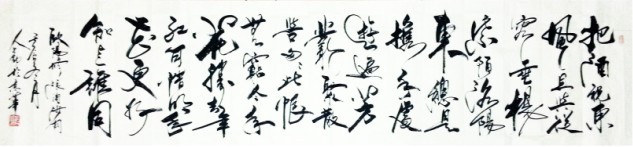 把酒祝東
風且共從
容垂楊
紫陌洛陽
東總是
攜手處
遊遍芳
叢聚散
苦匆匆此恨
無窮今年
花勝去年
紅可惜明年
花更好
知與誰同
歐陽修浪淘沙
六月
於京華